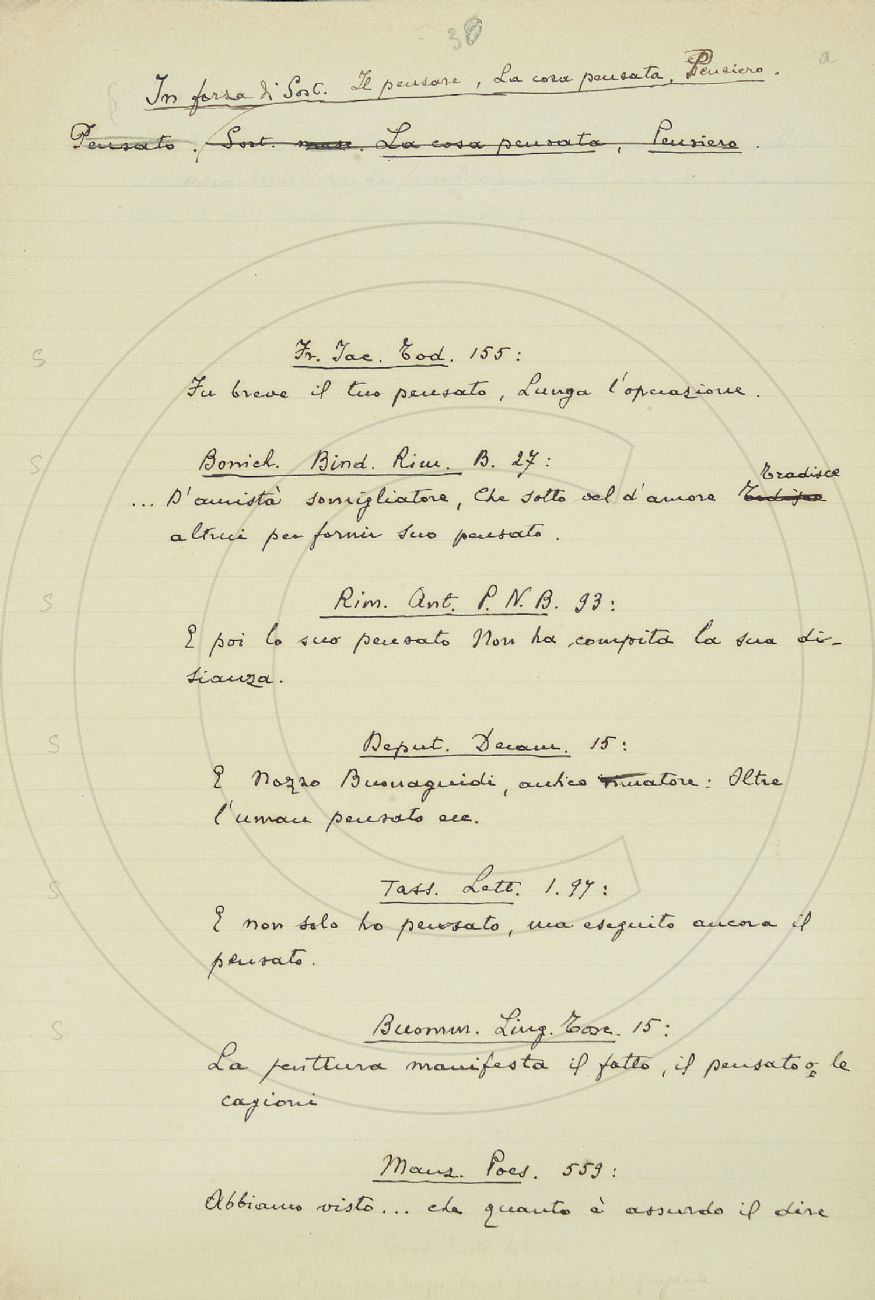 30
a
In forza di Sost. Il pensare, La cosa pensata, Pensiero.
Pensato. Sost. masc. La cosa pensata, Pensiero.
S
Fr. Jac. Tod. 155:
Fu breve il tuo pensato, Lunga l'operazione.
S
Bonich. Bind. Rim. B. 27:
Tradisce
... D'amistà somigliatore, Che sotto vel d'amore
altrui per fornir suo pensato.
S
Rim. Ant. P. N. B. 93:
E poi lo suo pensato Non ha compita la sua di-
sianza.
S
Deput. Decam. 15:
E Nozzo Buonaguidi, antico rimatore: Oltre
l'uman pensato ecc.
S
Tass. Lett. 1. 97:
E non solo ho pensato, ma eseguito ancora il
pensato.
S
Buommr. Ling. Tosc. 15:
La pittura manifesta il fatto, il pensato e le
cagioni
Manz. Poes. 559:
Abbiamo visto... che quanto è assurdo il dire